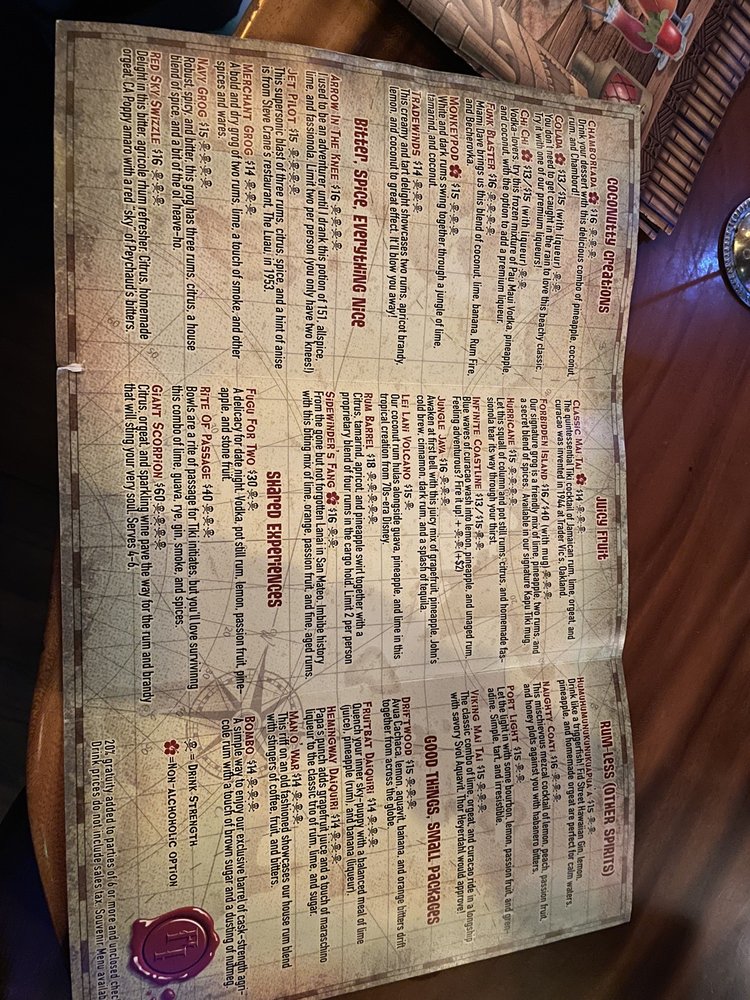 Coconutty Creations
Chamborlada $16
Drink your dessert with this delicious combo of pineapple, coconut,
rum, and Chambord.
Colada $13/$15 (with liqueur)
You don't need to get caught in the rain to love this beachy classic.
Try it with one of our premium liqueurs!
Chi Chi $13/$15 (with liqueur)
Vodka-lovers, try this frozen mixture of Pau Maui Vodka, pineapple,
and coconut, with the option to add a premium liqueur.
Funk Blaster $16
Mama Dave brings us this blend of coconut, lime, banana, Rum Fire,
and Becherovka.
Monkeypod $15
White and dark rums swing together through a jungle of lime,
tamarind, and coconut.
Tradewinds $14
This creamy and tart delight showcases two rums, apricot brandy,
lemon and coconut to great effect. It'll blow you away!
Bitter, Spice, Everything Nice
Arrow In The Knee $16
I used to be an adventurer until I drank this potion of 151, allspice,
lime, and fassionola. Limit two per person (you only have two knees!)
Jet Pilot $15
This supersonic blast of three rums, citrus, spice, and a hint of anise
is from Steve Crane's restaurant, The Luau in 1953.
Merchant Grog $14
A bold and dry grog of two rums, lime, a touch of smoke, and other
spices and wares.
Navy Grog $15
Robust, spicy, and bitter, this grog has three rums, citrus, a house
blend of spice, and a bit of the ol' heave-ho
Red Sky Swizzle $16
Delight in this bitter, agricole rhum refresher. Citrus, homemade
orgeat, CA Poppy amaro with a red "sky" of Peychaud's bitters.
Juicy Fruit
Classic Mai Tai $14
The quintessential Tiki cocktail of Jamaican rum, lime, orgeat, and
curacao was invented in 1944 at Trader Vic's, Oakland.
Forbidden Island $16/$40 (with mug)
Our signature grog is a friendly mix of lime, pineapple, two rums, and
a secret blend of spices. Available in our signature Kapu Tiki mug.
Hurricane $15
Let this squall of column and pot still rums, citrus, and homemade fas-
sionola tear its way through your thirst.
Infinite Coastline $13/$15
Blue waves of curacao wash into lemon, pineapple, and unaged rum.
Feeling adventurous? Fire it up + (+$2)
Jungle Java $16
Awaken at first bell with this juicy mix of grapefruit, pineapple, John's
cold brew, cinnamon, dark rum, and a splash of tequila.
Lei Lani Volcano $15
Our coconut rum hulas alongside guava, pineapple, and lime in this
tropical creation from 70s-era Disney.
Rum Barrel $18
Citrus, tamarind, apricot, and pineapple swirl together with a
proprietary blend of four rums in the cargo hold. Limit 2 per person
Sidewinder's Fang $16
From the gone but not forgotten Lanai in San Mateo, imbibe history
with this biting mix of lime, orange, passion fruit, and fine, aged rums.
Shared Experiences
Fugu For Two $30
A delicacy for date night! Vodka, pot still rum, lemon, passion fruit, pine-
apple, and stone fruit.
Rite Of Passage $40
Bowls are a rite of passage for Tiki initiates, but you'll love surviving
this combo of lime, guava, rye, gin, smoke, and spices.
Giant Scorpion $60
Citrus, orgeat, and sparkling wine pave the way for the rum and brandy
that will sting your very soul. Serves 4-6.
Rum-Less (Other Spirits)
Humuhumunukunukuapua'a $15
Drink like a triggerfish! Fid Street Hawaiian Gin, lemon,
pineapple, and homemade orgeat are perfect for calm waters.
Naughty Conti $16
This mischievous mezcal cocktail of lemon, peach, passion fruit,
and honey plots against you with habanero bitters.
Port Light $15
Let the light in with some bourbon, lemon, passion fruit, and gren-
adine. Simple, tart, and irresistible.
Viking Mai Tai $15
The classic combo of lime, orgeat, and curacao ride in a longship
with savory Svol Aquavit. Thor Heyerdahl would approve!
Good Things, Small Packages
Driftwood $15
Avua Cachaca, lemon, aquavit, banana, and orange bitters drift
together from across the globe.
Fruitbat Daiquiri $14
Quench your inner sky-puppy with a balanced meal of lime
(juice), pineapple (rum), and banana (liqueur).
Hemingway Daiquiri $14
Papa's punch adds grapefruit juice and a touch of maraschino
liqueur to the classic trio of rum, lime, and sugar.
Man O' War $14
This riff on an old fashioned showcases our house rum blend
with stingers of coffee, fruit, and bitters.
Bombo $14
A simple way to enjoy our exclusive barrel of cask-strength agri-
cole rum with a touch of brown sugar and a dusting of nutmeg.
=Drink Strength
=Non-Alchoholic Option
FI
20% gratuity added to parties of 6 or more and unclosed chec
Drink prices do not include sales tax. Souvenir Menu availab